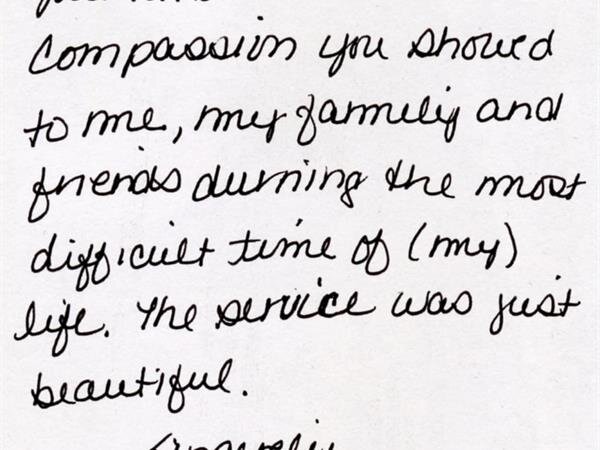 Compassion you showed
to me, my family and
friends durning the most
difficult time of (my)
life. The service was just
beautiful.